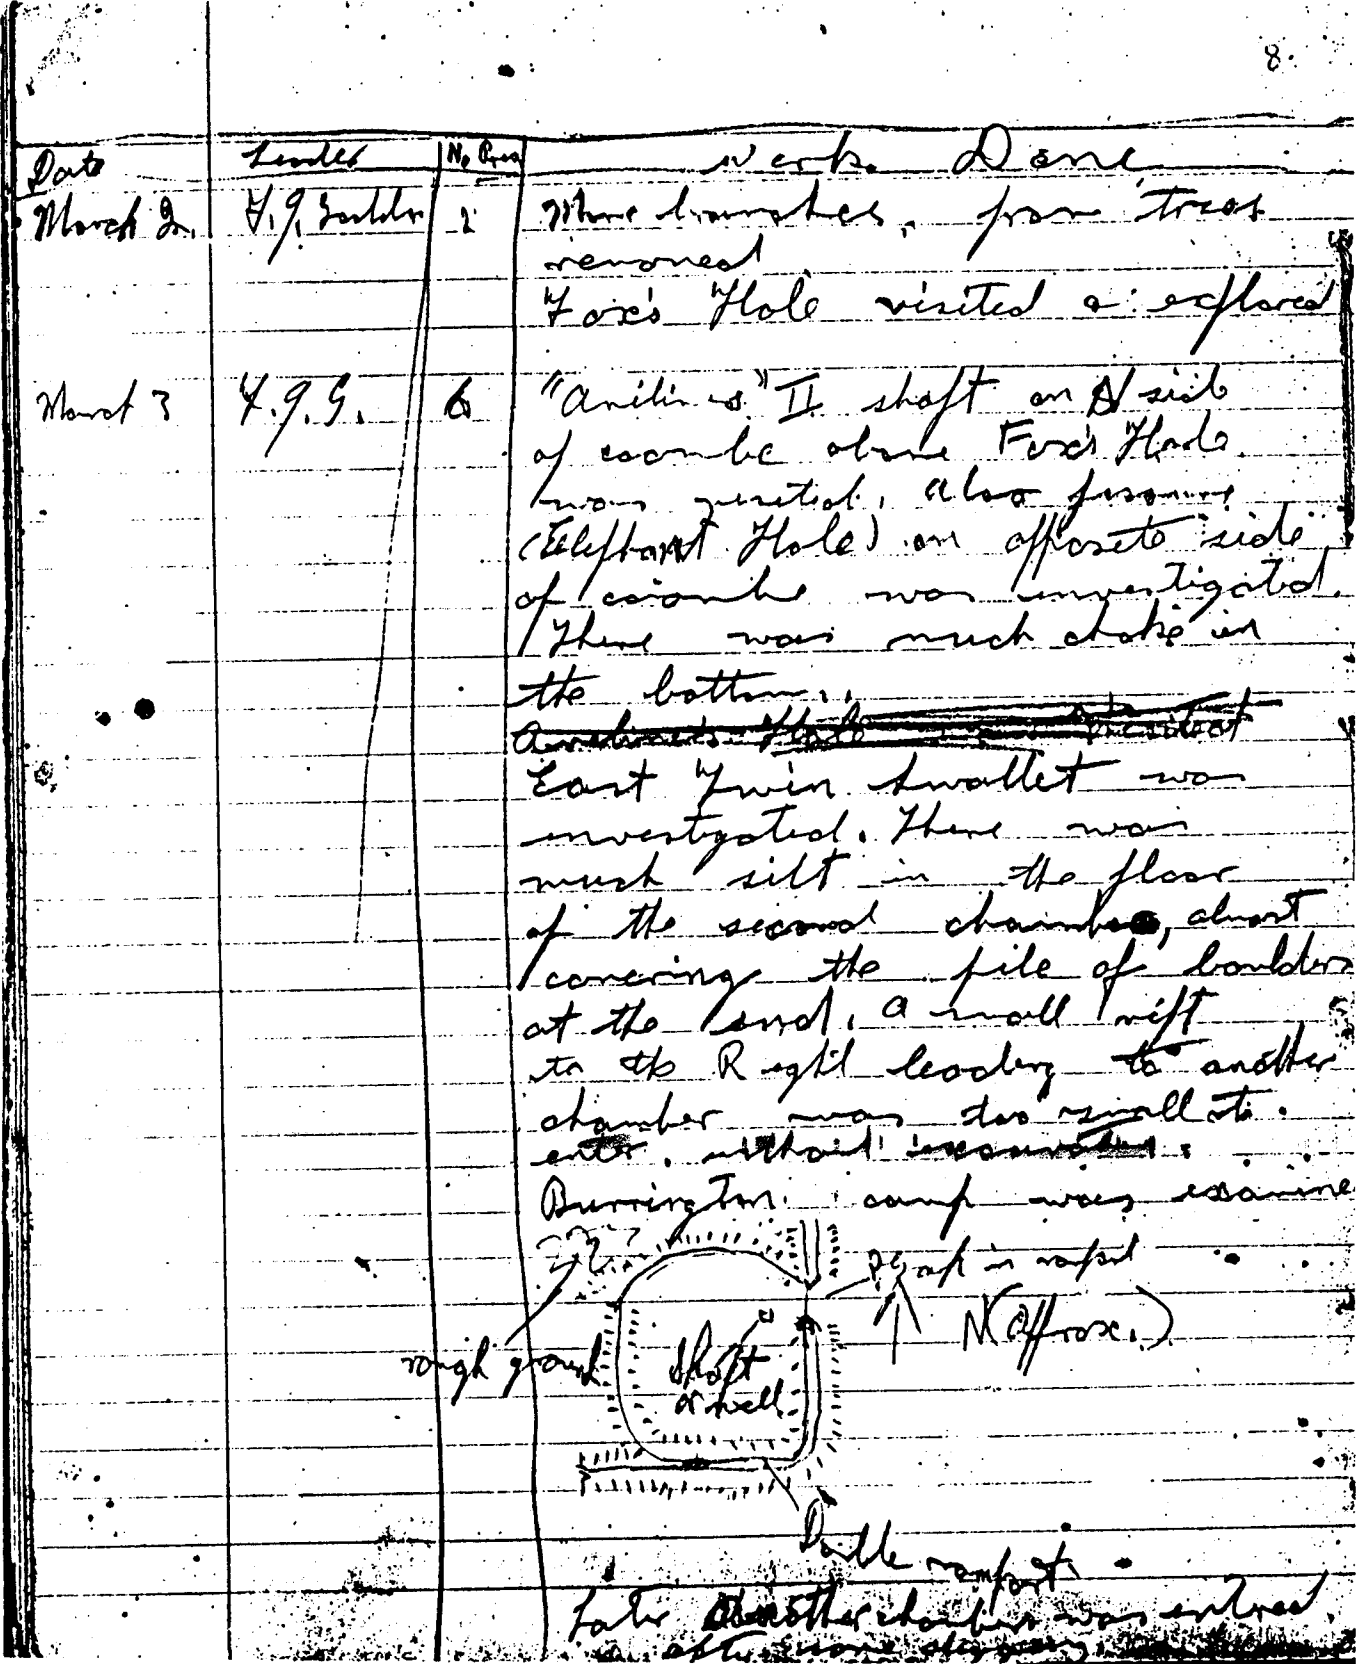 8.
Date Leader No Pres Work Done
March 2. F.G. 2 More branches, from trees
removed
Fox's Hole visited & explored
March 3 F.G.G. 6 "Aveline's" II shaft on N side
of coombe above Fox's Hole
was visited. Also fissure
(Elephant Hole) on opposite side
of coombe was investigated.
There was much choke in
the bottom.
Aveline's Hole visited
East Twin Swallet was
investigated. There was
much silt in the floor
of the second chamber, almost
covering the pile of boulders
at the end. A small rift
to the Right leading to another
chamber was too small to
enter, without excavation.
Burrington camp was examine
? Gap in rampt
N (Approx.)
rough ground
Shaft
or well
Double rampart
Later another chamber was entered
after some digging.